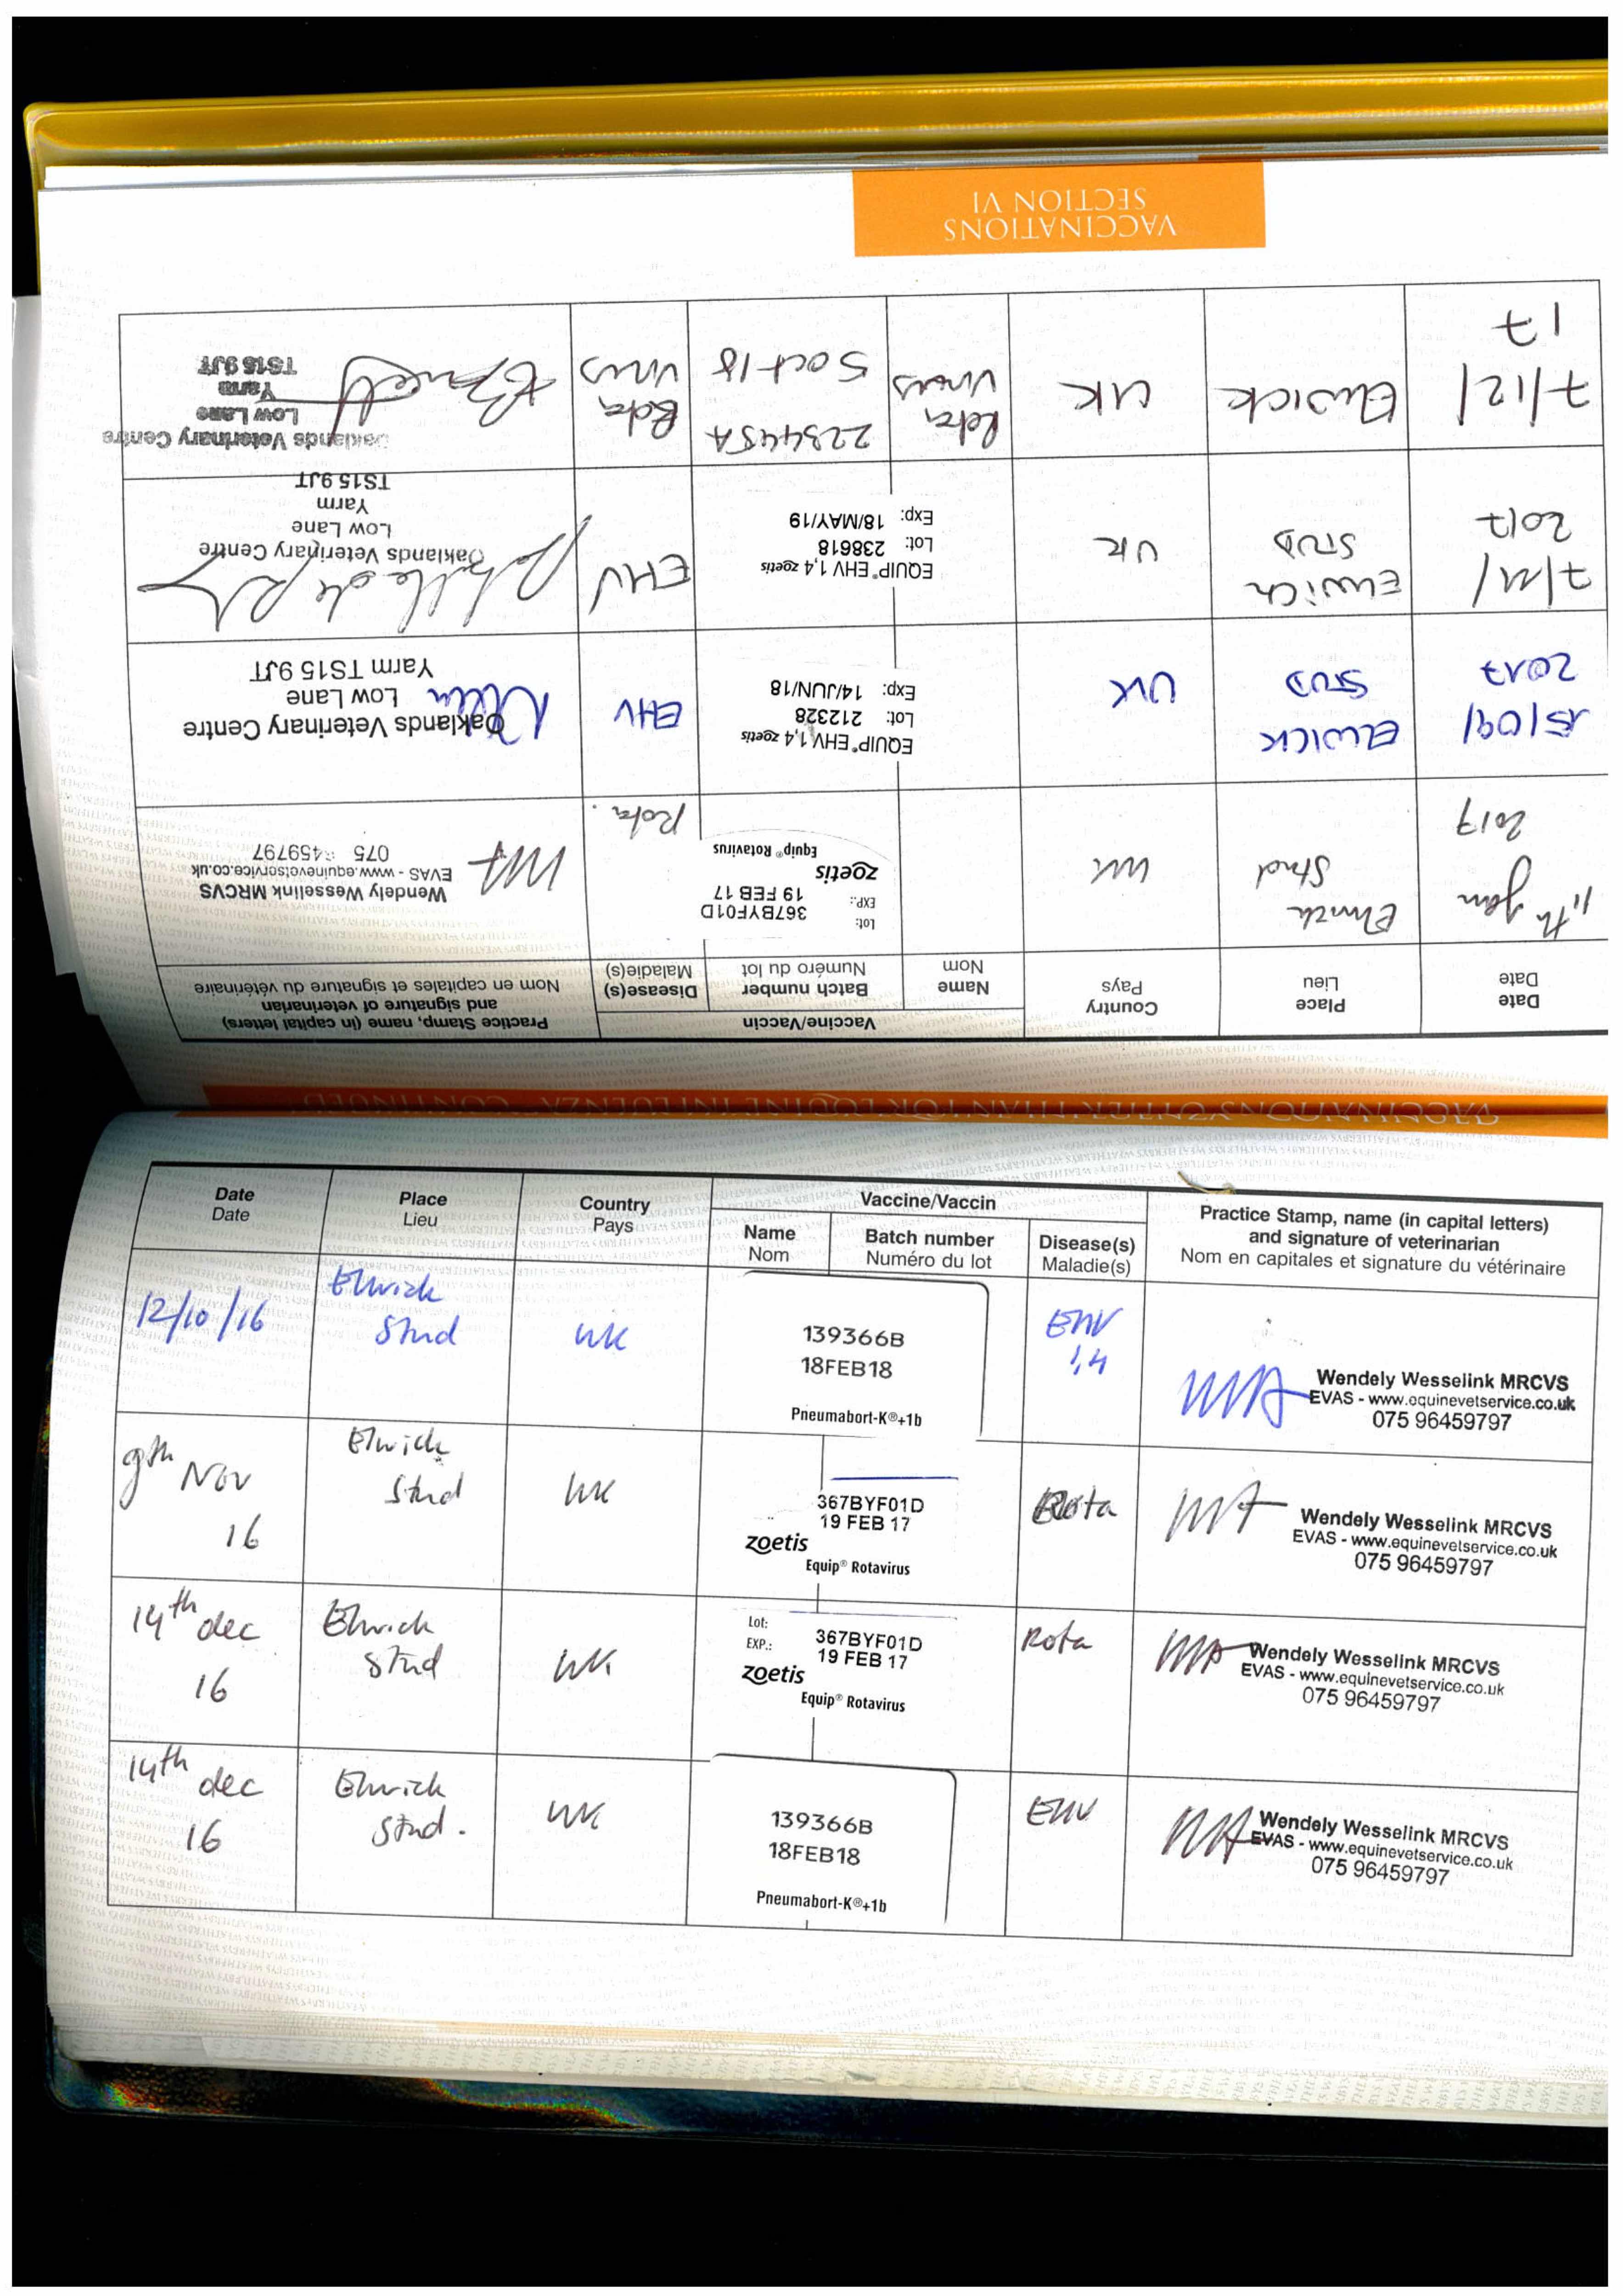 VACCINATIONS
SECTION VI
VACCINATIONS OTHER THAN FOR EQUINE INFLUENZA CONTINUED
Date
Date
Place
Lieu
Country
Pays
Vaccine/Vaccin
Name
Nom
Batch number
Numéro du lot
Disease(s)
Maladie(s)
Practice Stamp, name (in capital letters)
and signature of veterinarian
Nom en capitales et signature du vétérinaire
11th Jan
2017
Elwick
Stud
UK
Lot:
367BYF01D
EXP.:
19 FEB 17
zoetis
Equip® Rotavirus
Rota.
Wendely Wesselink MRCVS
EVAS - www.equinevetservice.co.uk
075 459797
15/09/
2017
ELWICK
STUD
UK
EQUIP® EHV 1,4 zoetis
Lot: 212328
Exp: 14/JUN/18
EHV
Oaklands Veterinary Centre
Low Lane
Yarm TS15 9JT
7/11/
2017
ELWICK
STUD
UK
EQUIP® EHV 1,4 zoetis
Lot: 238618
Exp: 18/MAY/19
EHV
Oaklands Veterinary Centre
Low Lane
Yarm
TS15 9JT
7/12/
17
Elwick
UK
Rota
Virus
223445A
5 oct 18
Rota
Virus
Oaklands Veterinary Centre
Low Lane
Yarm
TS15 9JT
Date
Date
Place
Lieu
Country
Pays
Vaccine/Vaccin
Name
Nom
Batch number
Numéro du lot
Disease(s)
Maladie(s)
Practice Stamp, name (in capital letters)
and signature of veterinarian
Nom en capitales et signature du vétérinaire
12/10/16
Elwick
Stud
UK
139366B
18FEB18
Pneumabort-K®+1b
EHV
1,4
Wendely Wesselink MRCVS
EVAS - www.equinevetservice.co.uk
075 96459797
9th Nov
16
Elwick
Stud
UK
367BYF01D
19 FEB 17
zoetis
Equip® Rotavirus
Rota
Wendely Wesselink MRCVS
EVAS - www.equinevetservice.co.uk
075 96459797
14th dec
16
Elwick
Stud
UK
Lot:
367BYF01D
EXP.:
19 FEB 17
zoetis
Equip® Rotavirus
Rota
Wendely Wesselink MRCVS
EVAS - www.equinevetservice.co.uk
075 96459797
14th dec
16
Elwick
Stud.
UK
139366B
18FEB18
Pneumabort-K®+1b
EHV
Wendely Wesselink MRCVS
EVAS - www.equinevetservice.co.uk
075 96459797